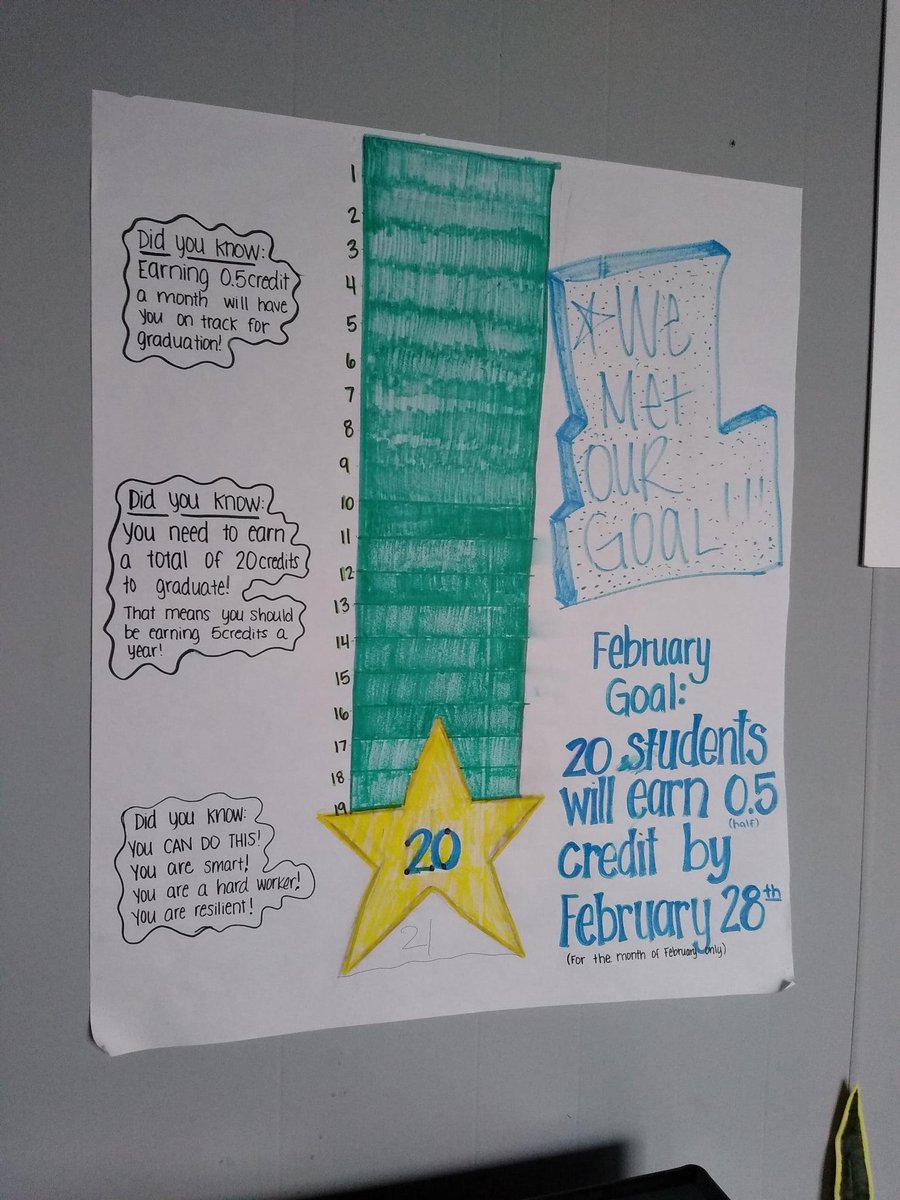 Did you know:
Earning 0.5credit
a month will have
you on track for
graduation!
Did you know:
You need to earn
a total of 20credits
to graduate!
That means you should
be earning 5credits a
year!
Did you know:
You CAN DO THIS!
You are smart!
You are a hard worker!
You are resilient!
1
2
3
4
5
6
7
8
9
10
11
12
13
14
15
16
17
18
19
20
21
*We
Met
OUR
GOAL!!!
February
Goal:
20 students
will earn 0.5
(half)
credit by
February 28th
(For the month of February only)